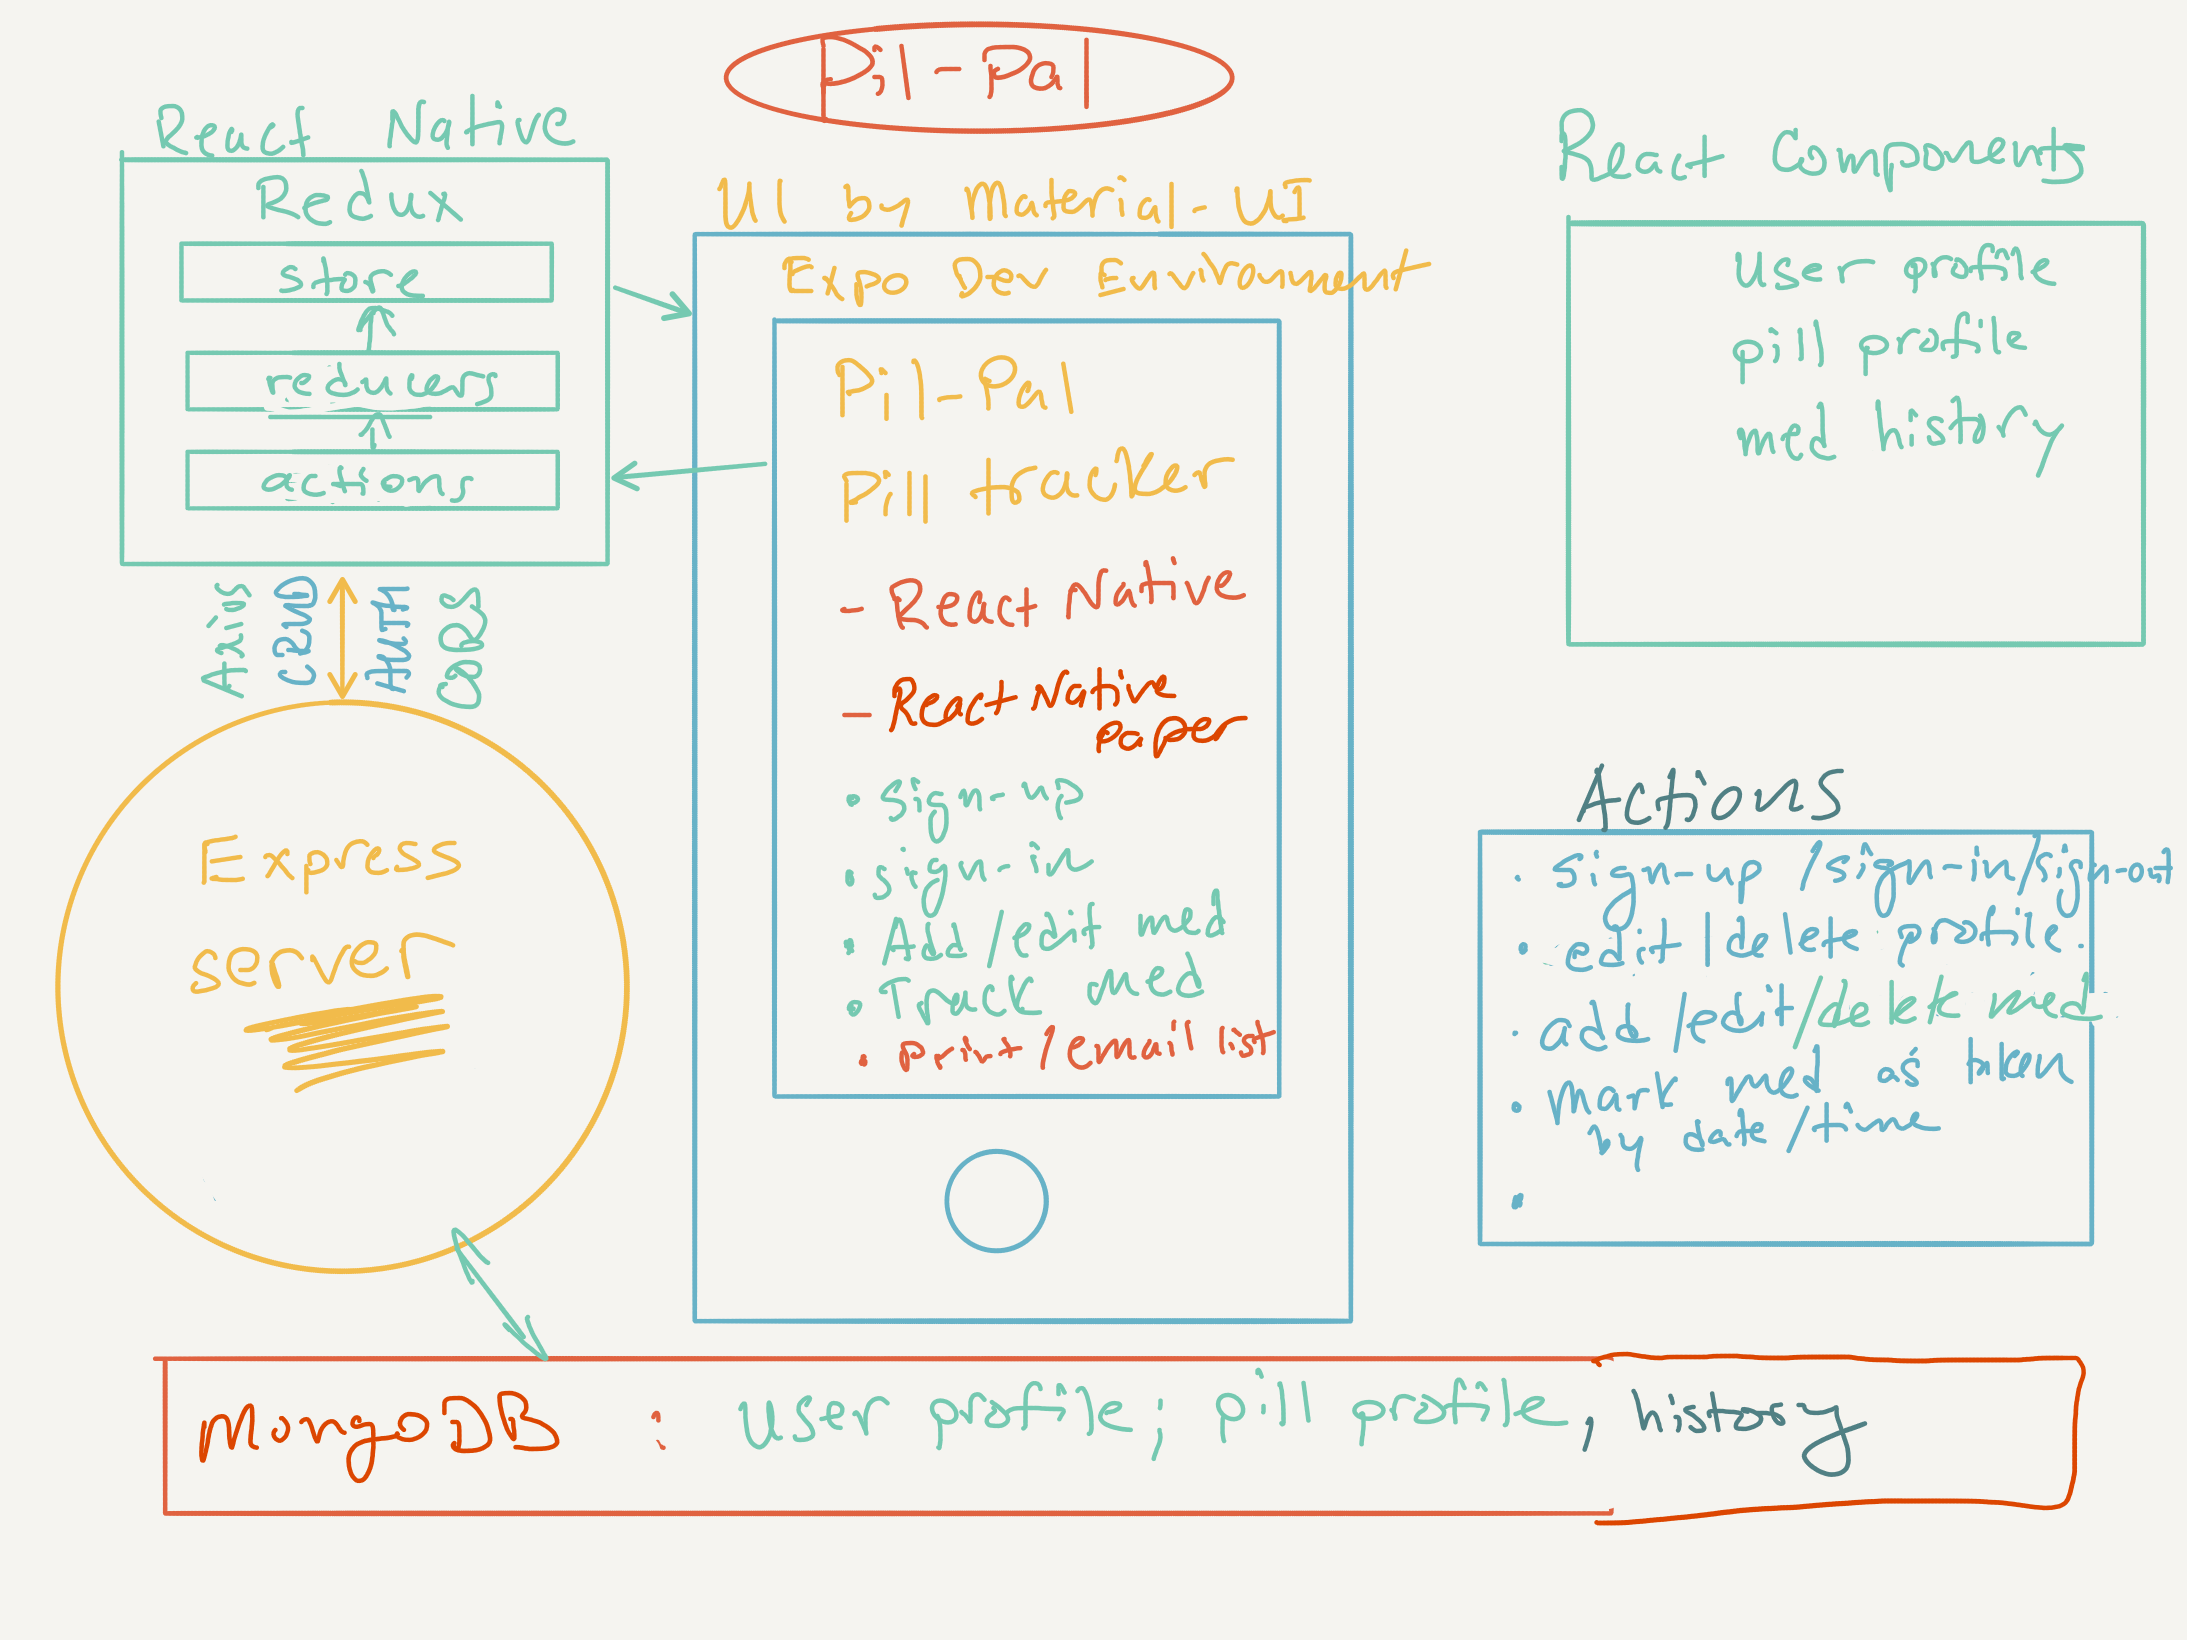 Pil-Pal
React Native
Redux
store
reducers
actions
Axios
CRUD
AUTH
CORS
Express
server
UI by Material-UI
Expo Dev Environment
Pil-Pal
Pill tracker
- React Native
- React Native
paper
• sign-up
• sign-in
• Add/edit med
• Track med
• print/email list
React Components
user profile
pill profile
med history
Actions
• sign-up/sign-in/sign-out
• edit/delete profile
• add/edit/delete med
• mark med as taken
by date/time
•
MongoDB : user profile; pill profile, history